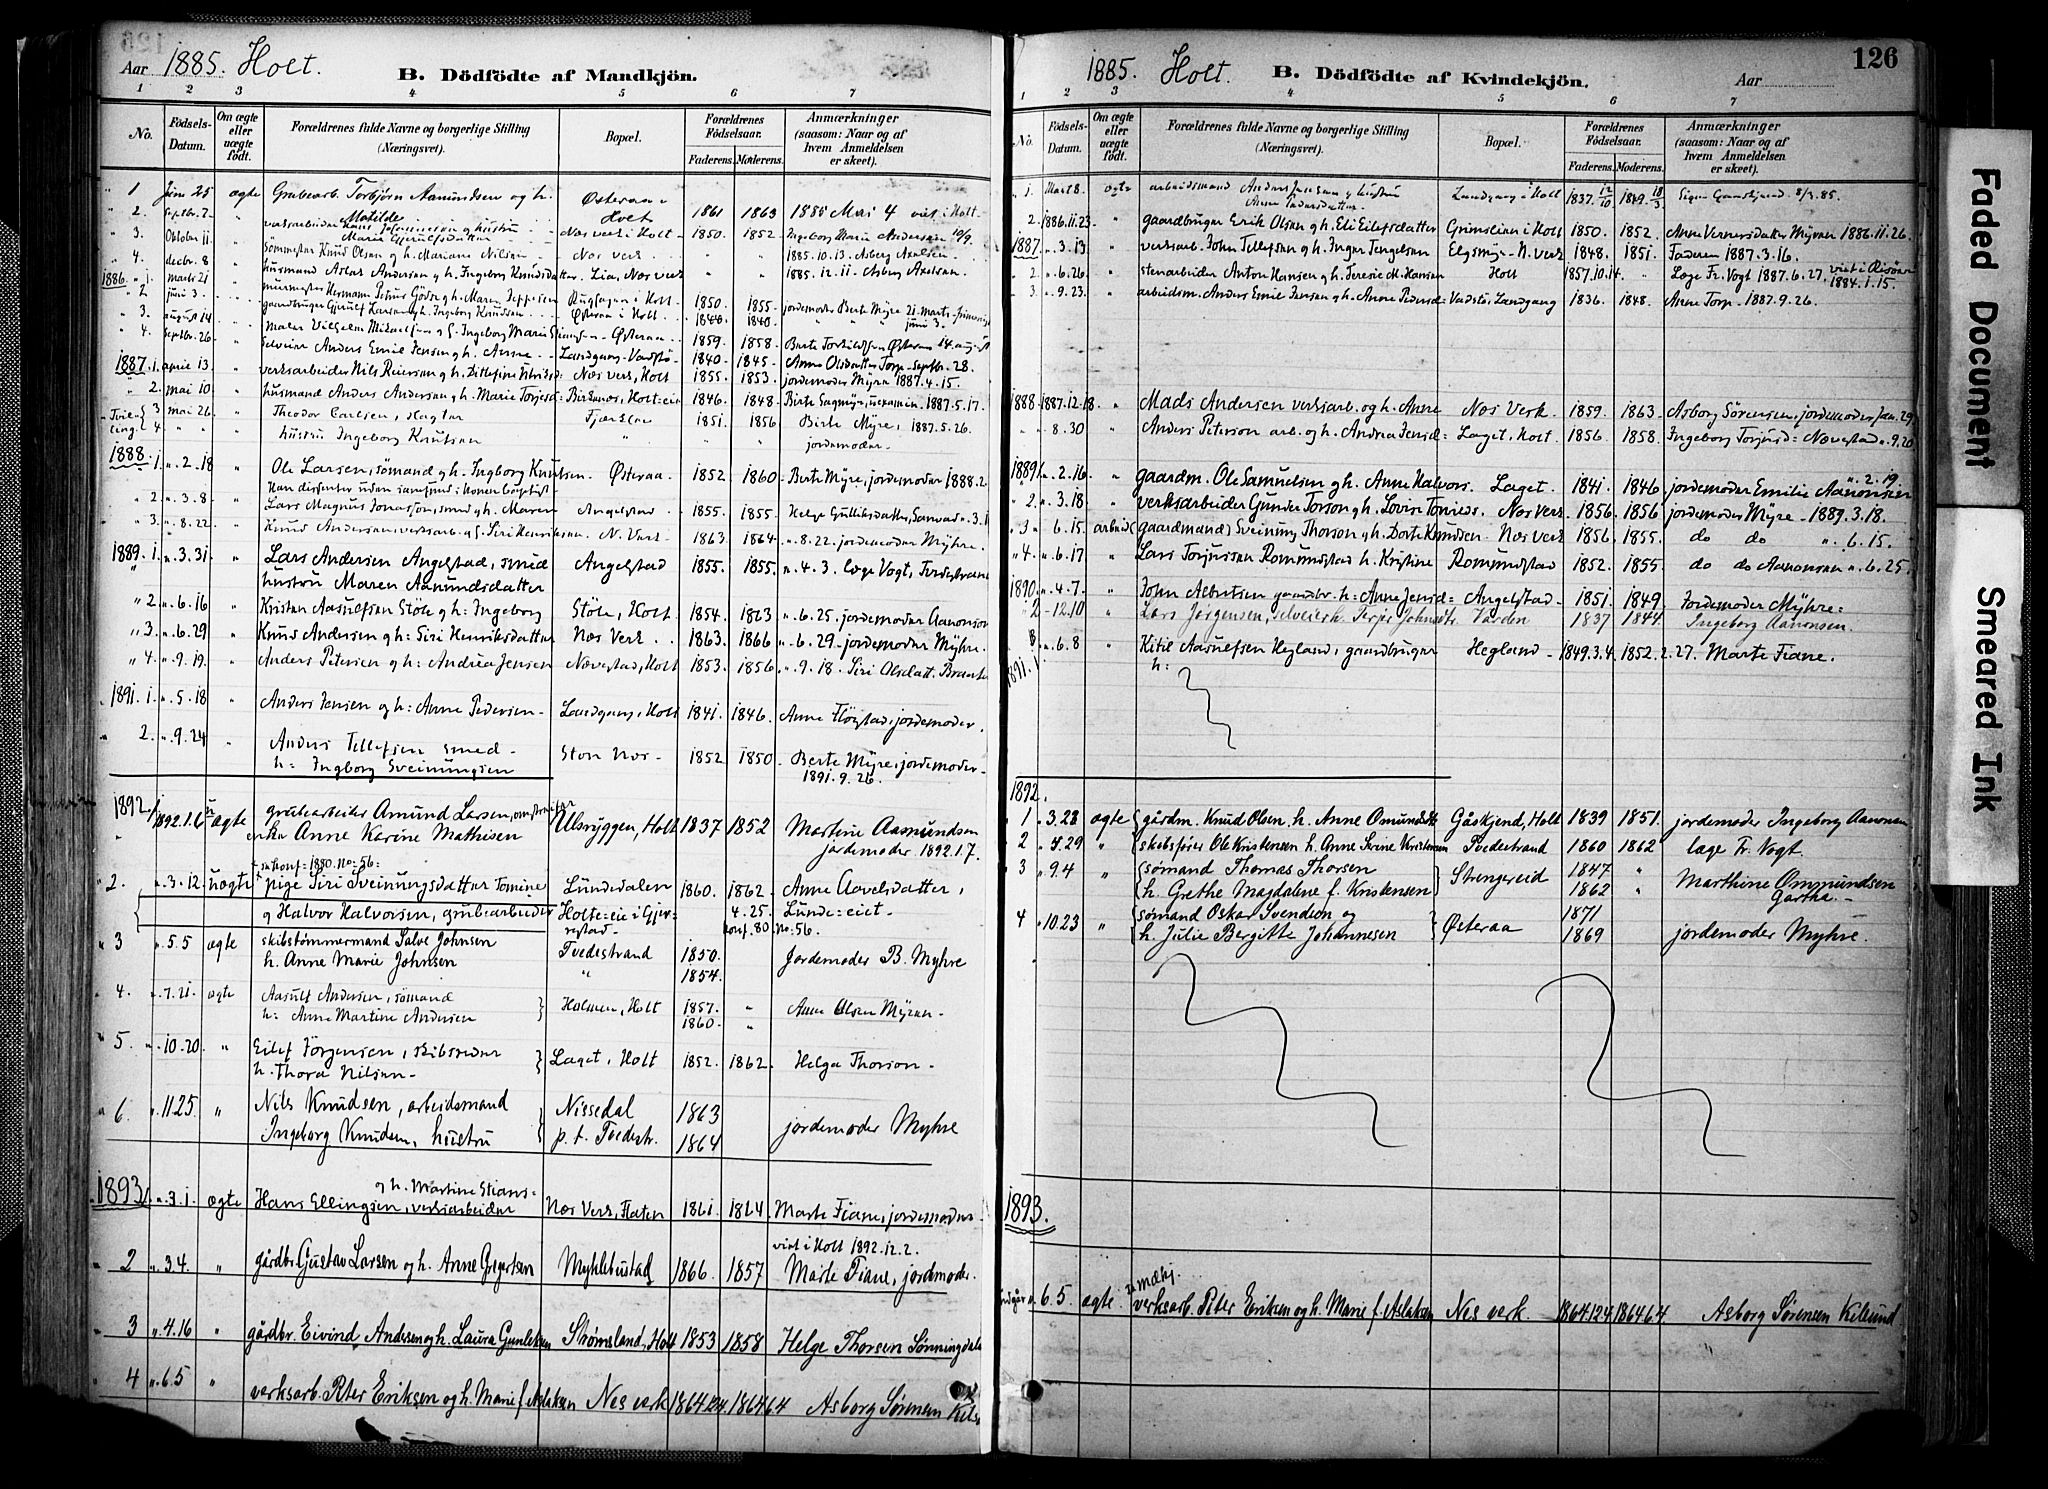 Aar 1885. Holt.
B. Dödfödte af Mandkjön.
1 2 3 4 5 6 7
No. Födsels-Datum. Om ægte eller uægte födt. Forældrenes fulde Navne og borgerlige Stilling (Næringsvei). Bopæl. Forældrenes Födselsaar. Faderens. Moderens. Anmærkninger (saasom: Naar og af hvem Anmeldelsen er skeet).
1 Juni 25 ægte Grubearb. Torbjørn Aamundsen og h. Østeraa i
2. Septbr. 7 " Matilde Holt 1861 1863 1885 Mai 4 viet i Holt
3. Oktober 11 " verksarbeider Johannessen og hustru
Marie Gjerulfsdatter Nes verk i Holt 1850. 1852. Ingeborg Marie Andersen 10/9.
4. decbr. 8 " Sømmester Knud Olsen og h. Mariane Nilsen Nes verk. " " 1885.10.13. Asberg Axelsen.
1886. 1. marts 21 husmand Aslak Andersen og h. Ingeborg Knudsdatter, Lia, Nes verk " " 1885.12.11. Asberg Axelsen.
2 juni 3. murmester Hermann Petrus Göde og h. Maren Jeppesen Rugsagen i Holt. 1850. 1855. jordemoder Berte Myre 21. marts
3. august 14 gaardbruger Gjerulf Larsen og h. Ingeborg Knudsen Østeraa i Holt. 1844. 1840. " " juni 3.
4. Septbr. 26 Maler Vilhelm Mikaelsen og h. Ingeborg Marie Østeraa 1859. 1858. Berte Torkildsen Østeraa 14. august
Selveier Anders Emil Jensen og h. Anne Landgang Vadstø 1840. 1845. Anne Olsdatter Torp Septbr. 28.
1887. 1. april 13 " verksarbeider Nils Reiersen og h. Nes verk, Holt 1855. 1853. jordemoder Myra 1887.4.15.
2. mai 10 " husmand Anders Andersen og h. Marie Torjesd: Birkenes, Holt=eie 1846. 1848. Berte Sagmyr, 1887.5.17.
Tvil- 3 mai 26 " Theodor Carlsen, Fjerklev 1851. 1856 Berte Myre, 1887.5.26.
ling 4 " " hustru Ingeborg Knutsen " " " jordemoder.
1888. 1. ".2.18 " Ole Larsen, sömand og h. Ingborg Knutsen. Østeraa. 1852. 1860. Berte Myre, jordemoder 1888.2.
Han dissenter uden samfund, Konen baptist.
2 ".3.8. " Lars Magnus Jonassen, smed og h. Maren Angelstad 1855. 1855. Helge Gulliksdatter,
3. ".8.22. " Knud Andersen, verksarb. og h. Siri Henriksen N. Verk. 1863. 1864. ".8.22. jordemoder Myhre.
1889. 1. ".3.31 " Lars Andersen Angelstad, smed Angelstad 1855. 1855. ".4.3. læge Vogt, Tvedestrand
hustru Maren Aanundsdatter
2. ".6.16 " Kristen Aasulfsen Støle og h: Ingeborg Støle, Holt. 1854. 1863 ".6.25. jordemoder Aanonsen
3. ".6.29 " Knud Andersen og h: Siri Henriksdatter Nes Verk. 1863. 1866 ".6.29. jordemoder Myhre.
4. ".9.19. " Anders Petersen og h: Andrea Jensen Nævestad, Holt 1853. 1856 ".9.18. Siri Olsdatt.
1891. 1. ".5.18 " Anders Jensen og h: Anne Pedersen Landgang, Holt 1841. 1846. Anne Fløystad, jordemoder.
2. ".9.24 " Anders Tellefsen smed
h: Ingborg Sveinungsen Ston Nes 1852 1850. Berte Myre, jordemoder
1891.9.26.
1892. 1. 1892.1.6 uægte grubearbeider Amund Larsen,
enke Anne Karine Mathisen Ulsryggen, Holt 1837 1852 Martine Aasmundsen
jordemoder 1892.1.7.
se konf: 1880. No: 56:
2. ".3.12. uægte pige Siri Sveinungsdatter Tomine Lundedalen 1860. 1862. Anne Aavelsdatter,
og Halvor Halvorsen, grubearbeider Holte=eie i Gjer= 4.25. Lunde=eiet
restad konf. 80. no: 56.
3 ".5.5 ægte skibstømmermand Salve Johnsen Tvedestrand 1850. Jordemoder B. Myhre
h. Anne Marie Johnsen " 1854.
4. ".7.21. ægte Aasulf Andersen, sømand Holmen, Holt 1857. " Anne Olsen Myren
h: Anne Martine Andersen 1860. "
5. ".10.20 " Eilef Jörgensen, skibsreder Laget, Holt 1852. 1862. Helga Thorson
h. Thora Nilsen
6 ".11.25 " Nils Knudsen, arbeidsmand Nissedal 1863 jordemoder Myhre
Ingeborg Knudsen, hustru p. t. Tvedestr. 1864
1893. ".3.1. ægte og h. Martine Stians=
Hans Ellingsen, verksarbeider Nes Verk, Flaten 1861. 1864. Marte Fiane, jordemoder
viet i Holt 1892.12.2.
2 ".3.4. " gårdbr. Gustav Larsen og h. Anne Gregertsen Myklebustad 1866. 1857 Marte Fiane, jordemoder.
3 ".4.16 " gårdbr. Eivind Andersen og h. Laura Gunleksen Strømsland, Holt 1853 1858 Helge Thorsen Sønningdalen
4 ".6.5 " verksarb. Peter Eriksen og h. Marie f. Aslaksen Nes verk 1864.12.4. 1864.6.4 Asborg Sørensen
126
1885. Holt. B. Dödfödte af Kvindekjön. Aar
1 2 3 4 5 6 7
No. Födsels-Datum. Om ægte eller uægte födt. Forældrenes fulde Navne og borgerlige Stilling (Næringsvei). Bopæl. Forældrenes Födselsaar. Faderens. Moderens. Anmærkninger (saasom: Naar og af hvem Anmeldelsen er skeet).
1. Mart 8. ægte arbeidsmand Anders Jensen og hustru
Anne Pedersdatter Landgang i Holt 1837. 12/10 1849. 18/3 8/3.85.
2. 1886.11.23. " gaardbruger Erik Olsen og h: Eli Eilefsdatter Grimslein i Holt 1850. 1852. Anne Vernersdatter Myren 1886.11.26.
1887. ".3.13. " verksarb. John Tellefsen og h: Inger Tengelsen Elgsmyr N. verk 1848. 1851. Faderen 1887.3.16.
2. ".6.26. " stenarbeider Anton Hansen og h: Teresie M. Hansen Holt 1857.10.14. " Læge Fr. Vogt 1887.6.27. viet i Risör
1884.1.15.
3. ".9.23. " arbeidsm. Anders Emil Jensen og h. Anne Pedersd: Vadstø, Landgang 1836. 1848. Anne Torp. 1887.9.26.
1888 1887.12.18. " Mads Andersen verksarb. og h. Anne Nes Verk. 1859. 1863. Asborg Sörensen, jordemoder Jan. 29
" ".8.30 " Anders Peterson arb. og h. Andrea Jensd= Laget, Holt. 1856. 1858. Ingeborg Torjusd= Nævestad ".9.20
1889 1. ".2.16. " gaardm. Ole Samuelsen og h: Anne Halvors. Laget. 1841. 1846. jordemoder Emilie Aanonsen ".2.19.
2. ".3.18. " verksarbeider Gunder Torson og h. Lovise Tomids. Nes Verk 1856. 1856 jordemoder Myre 1889.3.18.
3 ".6.15. arbeid (gaardmand) Sveinung Thorson og h. Dorte Knudsen Nes verk 1856. 1855. do do ".6.15.
4. ".6.17 " Lars Torjussen Romundstad h. Kristine Romundstad 1852. 1855. do do Aanonsen ".6.25.
1890. ".4.7. " John Albertsen gaardbr. h: Anne Jensd= Angelstad 1851. 1849. Jordemoder Myhre=
2 -12.10 " Lars Jörgensen, selveier h. Terjer Johnsdtr Varden 1837 1844. Ingeborg Aanonsen.
1891. 1. ".6.8 " Kitil Aasulfsen Hegland, gaardbruger Hegland 1849.3.4. 1852.2.27. Marte Fiane.
h:
1892.
1 3.28 ægte gårdm. Knud Olsen h. Anne Osmundsdtr Gåskjend, Holt 1839 1851. jordemoder Ingeborg Aanonsen
2 ".7.29 " skibsfører Ole Kristensen h. Anne Serine Kristensen Tvedestrand 1860 1862 læge Fr. Vogt.
3 ".9.4 " sømand Thomas Thorsen Strengereid 1847 " Marthine Ommundsen
h. Grethe Magdalene f. Kristensen 1862 Gartha.
4 ".10.23 " sømand Oskar Svendsen og Østeraa 1871 jordemoder Myhre.
h. Julie Bergitte Johannesen 1869
1893.
".6.5. ægte. verksarb. Peter Eriksen og h. Marie f. Aslaksen Nes verk. 1864.12.4 1864.6.4 Asborg Sørensen Kilsund
Faded Document
Smeared Ink